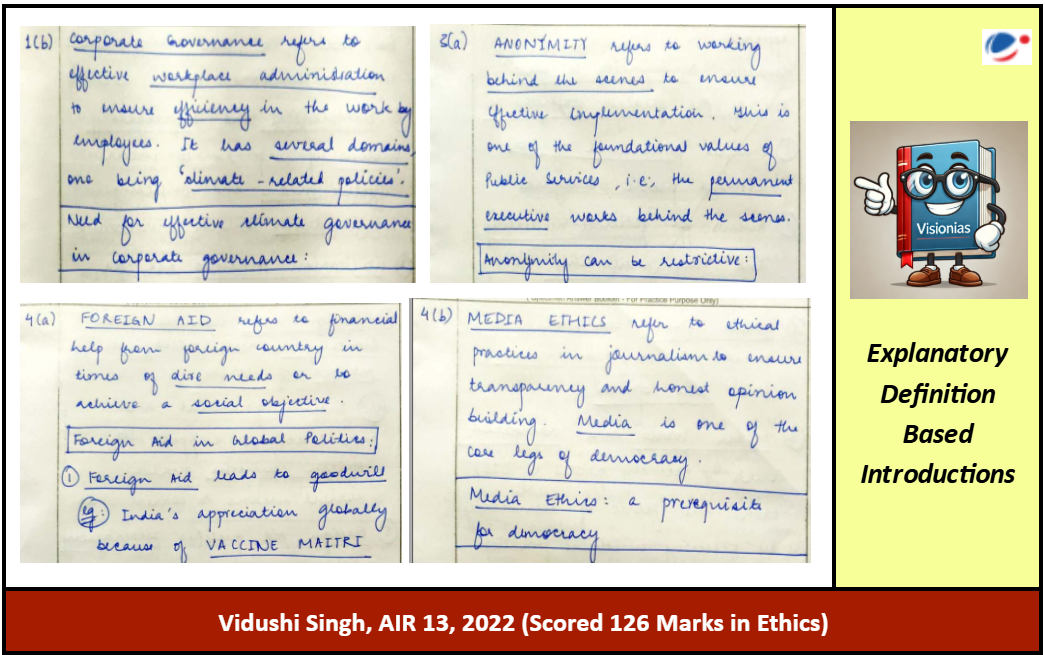 1(b) Corporate Governance refers to
effective workplace administration
to ensure efficiency in the work by
employees. It has several domains,
one being 'climate-related policies'.
Need for effective climate governance
in corporate governance:
3(a) ANONYMITY refers to working
behind the scenes to ensure
effective implementation. This is
one of the foundational values of
Public Services, i.e., the permanent
executive works behind the scenes.
Anonymity can be restrictive:
4(a) FOREIGN AID refers to financial
help from foreign country in
times of dire needs or to
achieve a social objective.
Foreign Aid in Global Politics:
① Foreign Aid leads to goodwill
eg: India's appreciation globally
because of VACCINE MAITRI
4(b) MEDIA ETHICS refer to ethical
practices in journalism to ensure
transparency and honest opinion
building. Media is one of the
core legs of democracy.
Media Ethics: a prerequisite
for democracy
Visionias
Explanatory
Definition
Based
Introductions
Vidushi Singh, AIR 13, 2022 (Scored 126 Marks in Ethics)